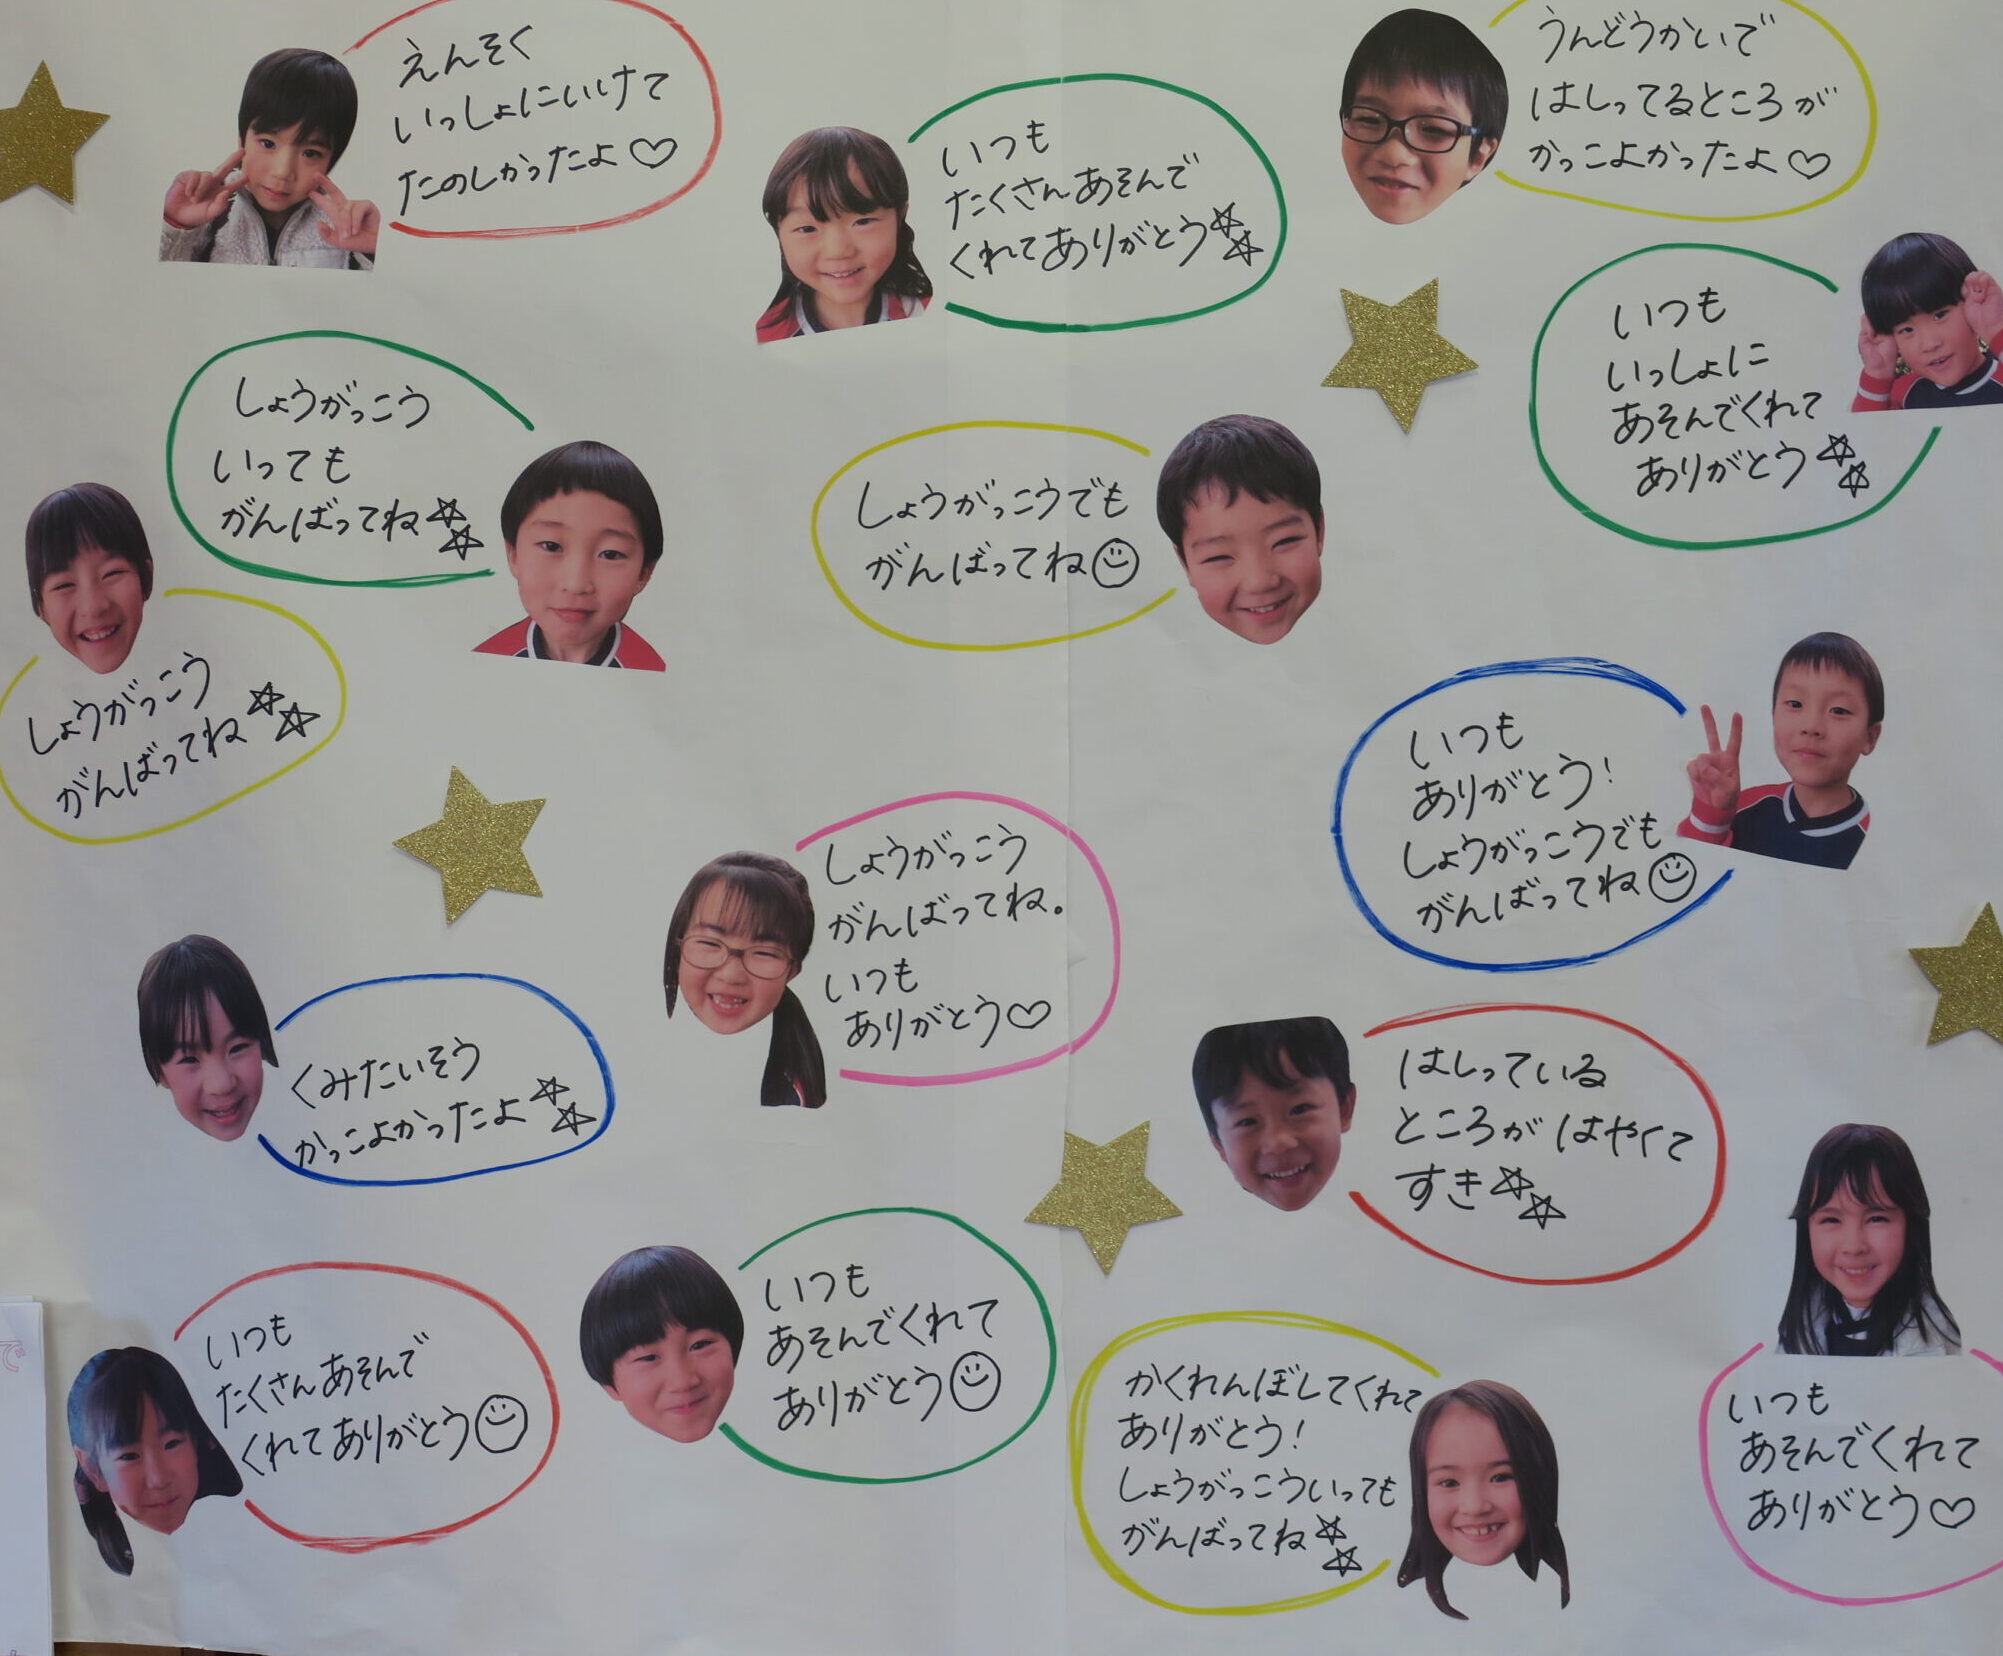 えんそく
いっしょにいけて
たのしかったよ♡
いつも
たくさんあそんで
くれてありがとう☆☆
うんどうかいで
はしってるところが
かっこよかったよ♡
しょうがっこう
いっても
がんばってね☆☆
しょうがっこうでも
がんばってね☺
いつも
いっしょに
あそんでくれて
ありがとう☆☆
しょうがっこう
がんばってね☆☆
しょうがっこう
がんばってね。
いつも
ありがとう♡
いつも
ありがとう!
しょうがっこうでも
がんばってね☺
くみたいそう
かっこよかったよ☆☆
はしっている
ところがはやくて
すき☆☆
いつも
たくさんあそんで
くれてありがとう☺
いつも
あそんでくれて
ありがとう☺
かくれんぼしてくれて
ありがとう!
しょうがっこういっても
がんばってね☆☆
いつも
あそんでくれて
ありがとう♡